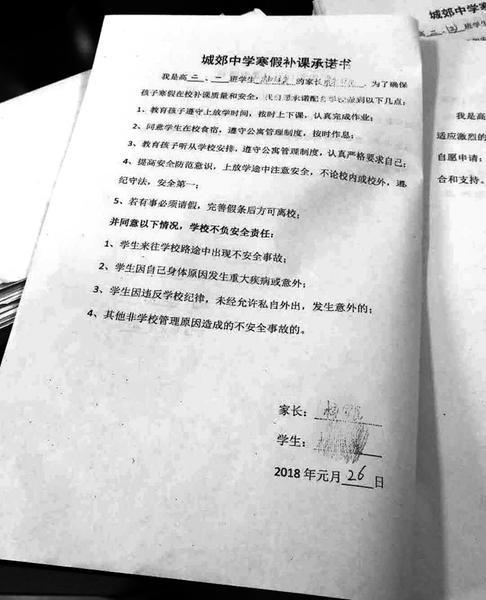 城郊中学寒假补课承诺书
我是高二、一班学生 的家长 为了确保
孩子寒假在校补课质量和安全, 承诺配 到以下几点:
1、教育孩子遵守上放学时间,按时上下课,认真完成作业;
2、同意学生在校食宿,遵守公寓管理制度,按时作息;
3、教育孩子听从学校安排,遵守公寓管理制度,认真严格要求自己;
4、提高安全防范意识,上放学途中注意安全,不论校内或校外,遵
纪守法,安全第一;
5、若有事必须请假,完善假条后方可离校;
并同意以下情况,学校不负安全责任:
1、学生来往学校路途中出现不安全事故;
2、学生因自己身体原因发生重大疾病或意外;
3、学生因违反学校纪律,未经允许私自外出,发生意外的;
4、其他非学校管理原因造成的不安全事故的。
家长:
学生:
2018 年元月 26 日
城郊中学
我是高二、(3)
适应激烈的
自愿申请:
合和支持。